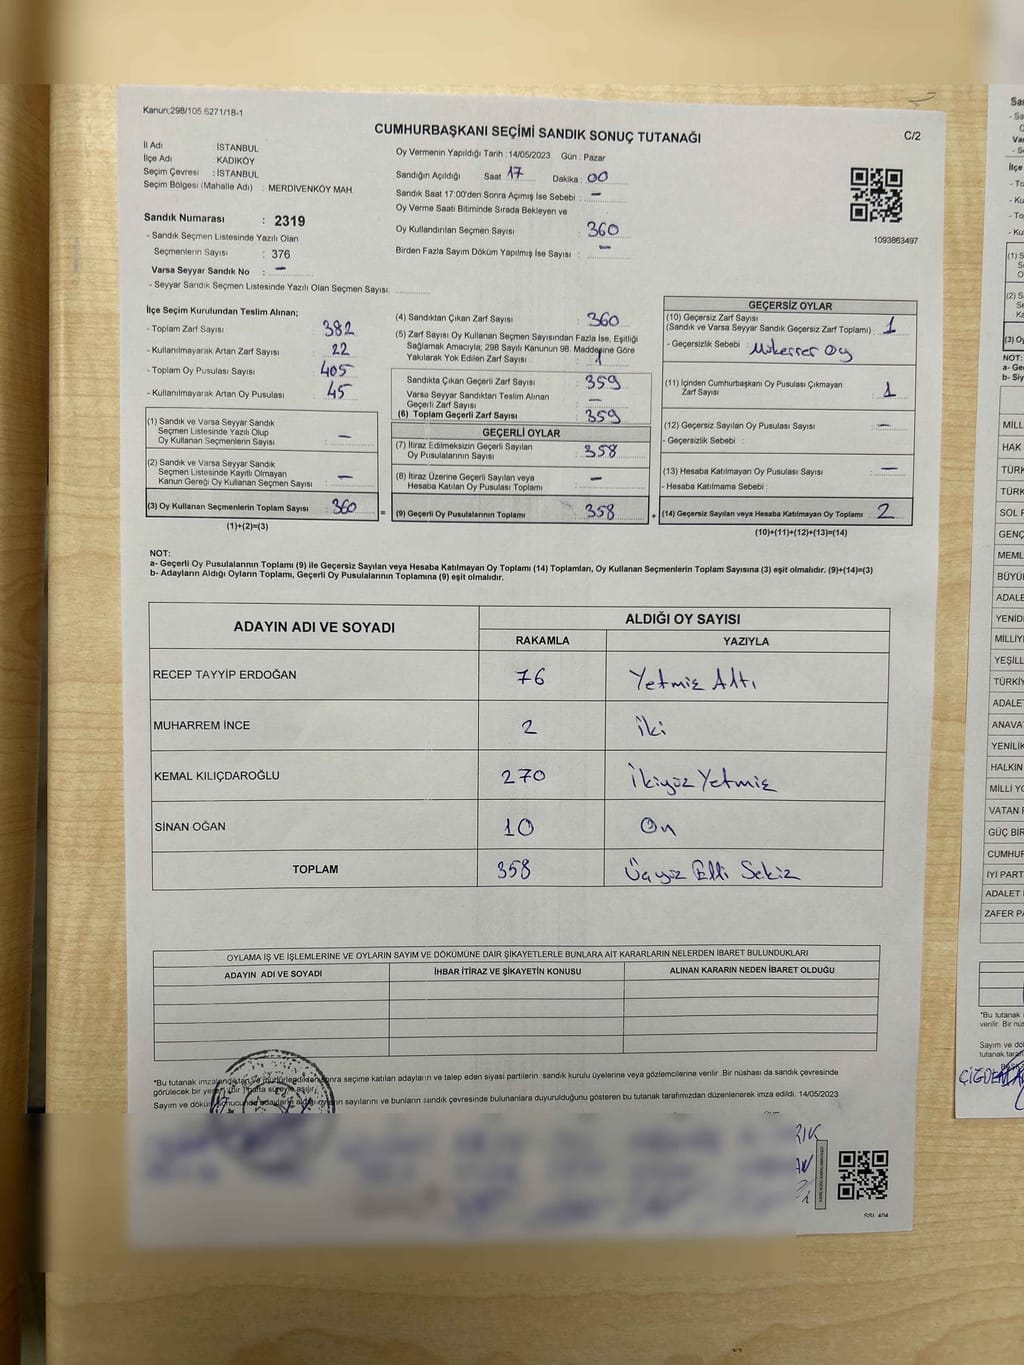 Kanun;298/105 6271/18-1
CUMHURBAŞKANI SEÇİMİ SANDIK SONUÇ TUTANAĞI
C/2
İl Adı : İSTANBUL
İlçe Adı KADIKÖY
Seçim Çevresi : İSTANBUL
Seçim Bölgesi (Mahalle Adı) : MERDİVENKÖY MAH.
Sandık Numarası : 2319
- Sandık Seçmen Listesinde Yazılı Olan
Seçmenlerin Sayısı : 376
Varsa Seyyar Sandık No : -
- Seyyar Sandık Seçmen Listesinde Yazılı Olan Seçmen Sayısı:
Oy Vermenin Yapıldığı Tarih : 14/05/2023 Gün : Pazar
Sandığın Açıldığı Saat 17 Dakika : 00
Sandık Saat 17:00'den Sonra Açımış İse Sebebi : -
Oy Verme Saati Bitiminde Sırada Bekleyen ve
Oy Kullandırılan Seçmen Sayısı : 360
Birden Fazla Sayım Döküm Yapılmış İse Sayısı : -
1093863497
İlçe Seçim Kurulundan Teslim Alınan;
- Toplam Zarf Sayısı : 382
- Kullanılmayarak Artan Zarf Sayısı : 22
- Toplam Oy Pusulası Sayısı : 405
- Kullanılmayarak Artan Oy Pusulası : 45
(1) Sandık ve Varsa Seyyar Sandık
Seçmen Listesinde Yazılı Olup
Oy Kullanan Seçmenlerin Sayısı : -
(2) Sandık ve Varsa Seyyar Sandık
Seçmen Listesinde Kayıtlı Olmayan
Kanun Gereği Oy Kullanan Seçmen Sayısı : -
(3) Oy Kullanan Seçmenlerin Toplam Sayısı : 360
(1)+(2)=(3)
(4) Sandıktan Çıkan Zarf Sayısı : 360
(5) Zarf Sayısı Oy Kullanan Seçmen Sayısından Fazla İse, Eşitliği
Sağlamak Amacıyla; 298 Sayılı Kanunun 98. Maddesine Göre
Yakılarak Yok Edilen Zarf Sayısı : 1
Sandıkta Çıkan Geçerli Zarf Sayısı : 359
Varsa Seyyar Sandıktan Teslim Alınan
Geçerli Zarf Sayısı : -
(6) Toplam Geçerli Zarf Sayısı : 359
GEÇERLİ OYLAR
(7) İtiraz Edilmeksizin Geçerli Sayılan
Oy Pusulalarının Sayısı : 358
(8) İtiraz Üzerine Geçerli Sayılan veya
Hesaba Katılan Oy Pusulası Toplamı : -
(9) Geçerli Oy Pusulalarının Toplamı : 358
GEÇERSİZ OYLAR
(10) Geçersiz Zarf Sayısı
(Sandık ve Varsa Seyyar Sandık Geçersiz Zarf Toplamı) : 1
- Geçersizlik Sebebi : Mükerrer Oy
(11) İçinden Cumhurbaşkanı Oy Pusulası Çıkmayan
Zarf Sayısı : 1
(12) Geçersiz Sayılan Oy Pusulası Sayısı : -
- Geçersizlik Sebebi :
(13) Hesaba Katılmayan Oy Pusulası Sayısı : -
- Hesaba Katılmama Sebebi :
(14) Geçersiz Sayılan veya Hesaba Katılmayan Oy Toplamı : 2
(10)+(11)+(12)+(13)=(14)
NOT:
a- Geçerli Oy Pusulalarının Toplamı (9) ile Geçersiz Sayılan veya Hesaba Katılmayan Oy Toplamı (14) Toplamları, Oy Kullanan Seçmenlerin Toplam Sayısına (3) eşit olmalıdır. (9)+(14)=(3)
b- Adayların Aldığı Oyların Toplamı, Geçerli Oy Pusulalarının Toplamına (9) eşit olmalıdır.
ADAYIN ADI VE SOYADI ALDIĞI OY SAYISI
RAKAMLA YAZIYLA
RECEP TAYYİP ERDOĞAN 76 Yetmiş Altı
MUHARREM İNCE 2 İki
KEMAL KILIÇDAROĞLU 270 İkiyüz Yetmiş
SİNAN OĞAN 10 On
TOPLAM 358 Üçyüz Elli Sekiz
OYLAMA İŞ VE İŞLEMLERİNE VE OYLARIN SAYIM VE DÖKÜMÜNE DAİR ŞİKAYETLERLE BUNLARA AİT KARARLARIN NELERDEN İBARET BULUNDUKLARI
ADAYIN ADI VE SOYADI İHBAR İTİRAZ VE ŞİKAYETİN KONUSU ALINAN KARARIN NEDEN İBARET OLDUĞU
*Bu tutanak imzalandıktan ve mühürlendikten sonra seçime katılan adayların ve talep eden siyasi partilerin sandık kurulu üyelerine veya gözlemcilerine verilir. Bir nüshası da sandık çevresinde
görülecek bir yere bir hafta süreyle asılır.
Sayım ve döküm sonucunda adayların aldığı oyların sayılarını ve bunların sandık çevresinde bulunanlara duyurulduğunu gösteren bu tutanak tarafımızdan düzenlenerek imza edildi. 14/05/2023
İlçe
(1) S
(2) S
(3) O
NOT:
a- Ge
b- Siy
MİLL
HAK
TÜRK
TÜRK
SOL F
GENÇ
MEML
BÜYÜ
ADALE
YENİD
MİLLİY
YEŞİLL
TÜRKİY
ADALE
ANAVA
YENİLİK
HALKIN
MİLLİ YO
VATAN P
GÜÇ BİR
CUMHUR
İYİ PART
ADALET
ZAFER PA
*Bu tutanak i
verilir. Bir nüs
Sayım ve dö
tutanak taraf
ÇİĞDEM